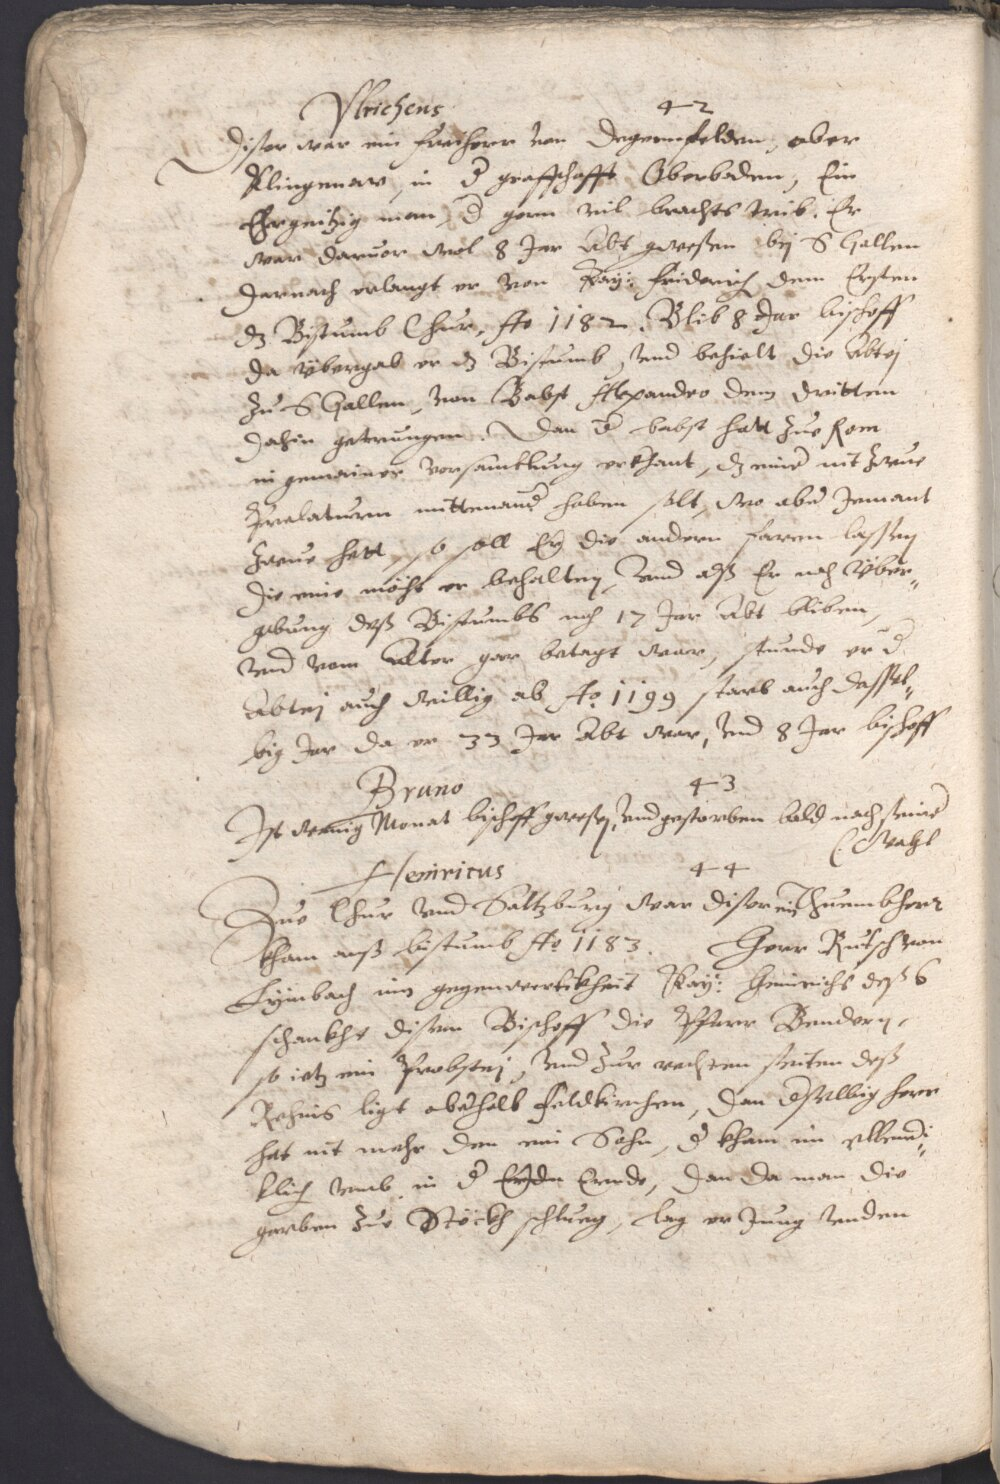 Vlrichens 42
Diser war ein Freiherr von Degernfelden, ober
Klingenaw, in d graffschafft Oberbaden, Ein
Ehrgeitzig man, d gern vil brachts trib. Er
war daruor wol 8 Jar Abt gwesen bej S Gallen
Darnach erlangt er von Kay: Friderich dem Ersten
dz Bistumb Chur, Ao 1182. Blib 8 Jar bischoff
da vbergab er dz Bistumb, vnd behielt die Abtej
zu S Gallen, von Babst Alexandro dem dritten
dahin getrungen. Dan d babst hatt zue Rom
in gemainer versamblung erkhant, dz einer nit zwue
Prelaturen mittenand haben solt, wo aber Jemant
zwue hett, so soll Er die andern faren lassen
die eine möcht er behalten, vnd alß Er nach Vber-
gebung deß Bistumbs noch 17 Jar Abt bliben,
vnd vom Alter gar betagt war, stunde er d
Abtej auch willig ab Ao 1199 starb auch dessel-
big Jar da er 33 Jar Abt war, vnd 8 Jar bischoff
Bruno 43
Ist wenig Monat bischoff gwesen, vnd gestorben bald nach seiner
Wahl
Heinricus 44
Zue Chur vnd Saltzburg war diser ein Thuembherr
kham anß bistumb Ao 1183. Herr Rutsch von
Eynbach inn gegenwertikheit Kay: Heinrichs deß 6
schankhe disem Bischoff die Pfarr Bendern,
so ietz ein Probstej, vnd zur rechten seiten deß
Rheins ligt oberhalb Feldkirchen, Dan derselbig herr
hat nit mehr den ein Sohn, d kham im ellendi-
klich vmb in d Ernde, Dan da man die
garben zue Stöckh schlueg, lag er Jung vnden